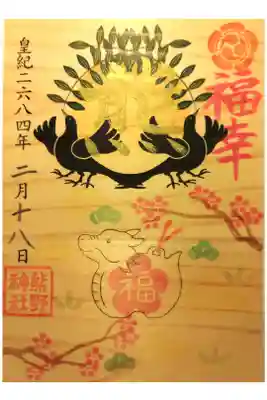 福幸
皇紀二六八四年
二月十八日
福
熊野
神社